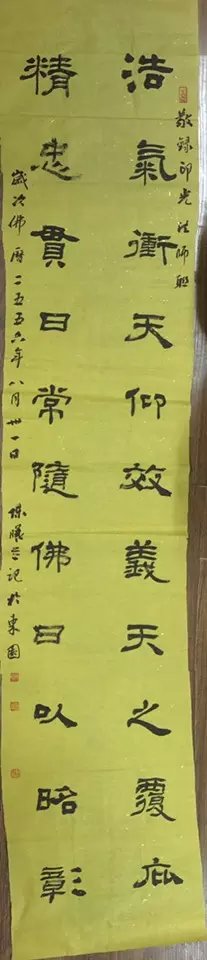 敬録印光法師聯
浩氣衝天仰效義天之覆庇
精忠貫日常隨佛日以昭彰
歲次佛曆二五五六年八月卅一日
記於東園